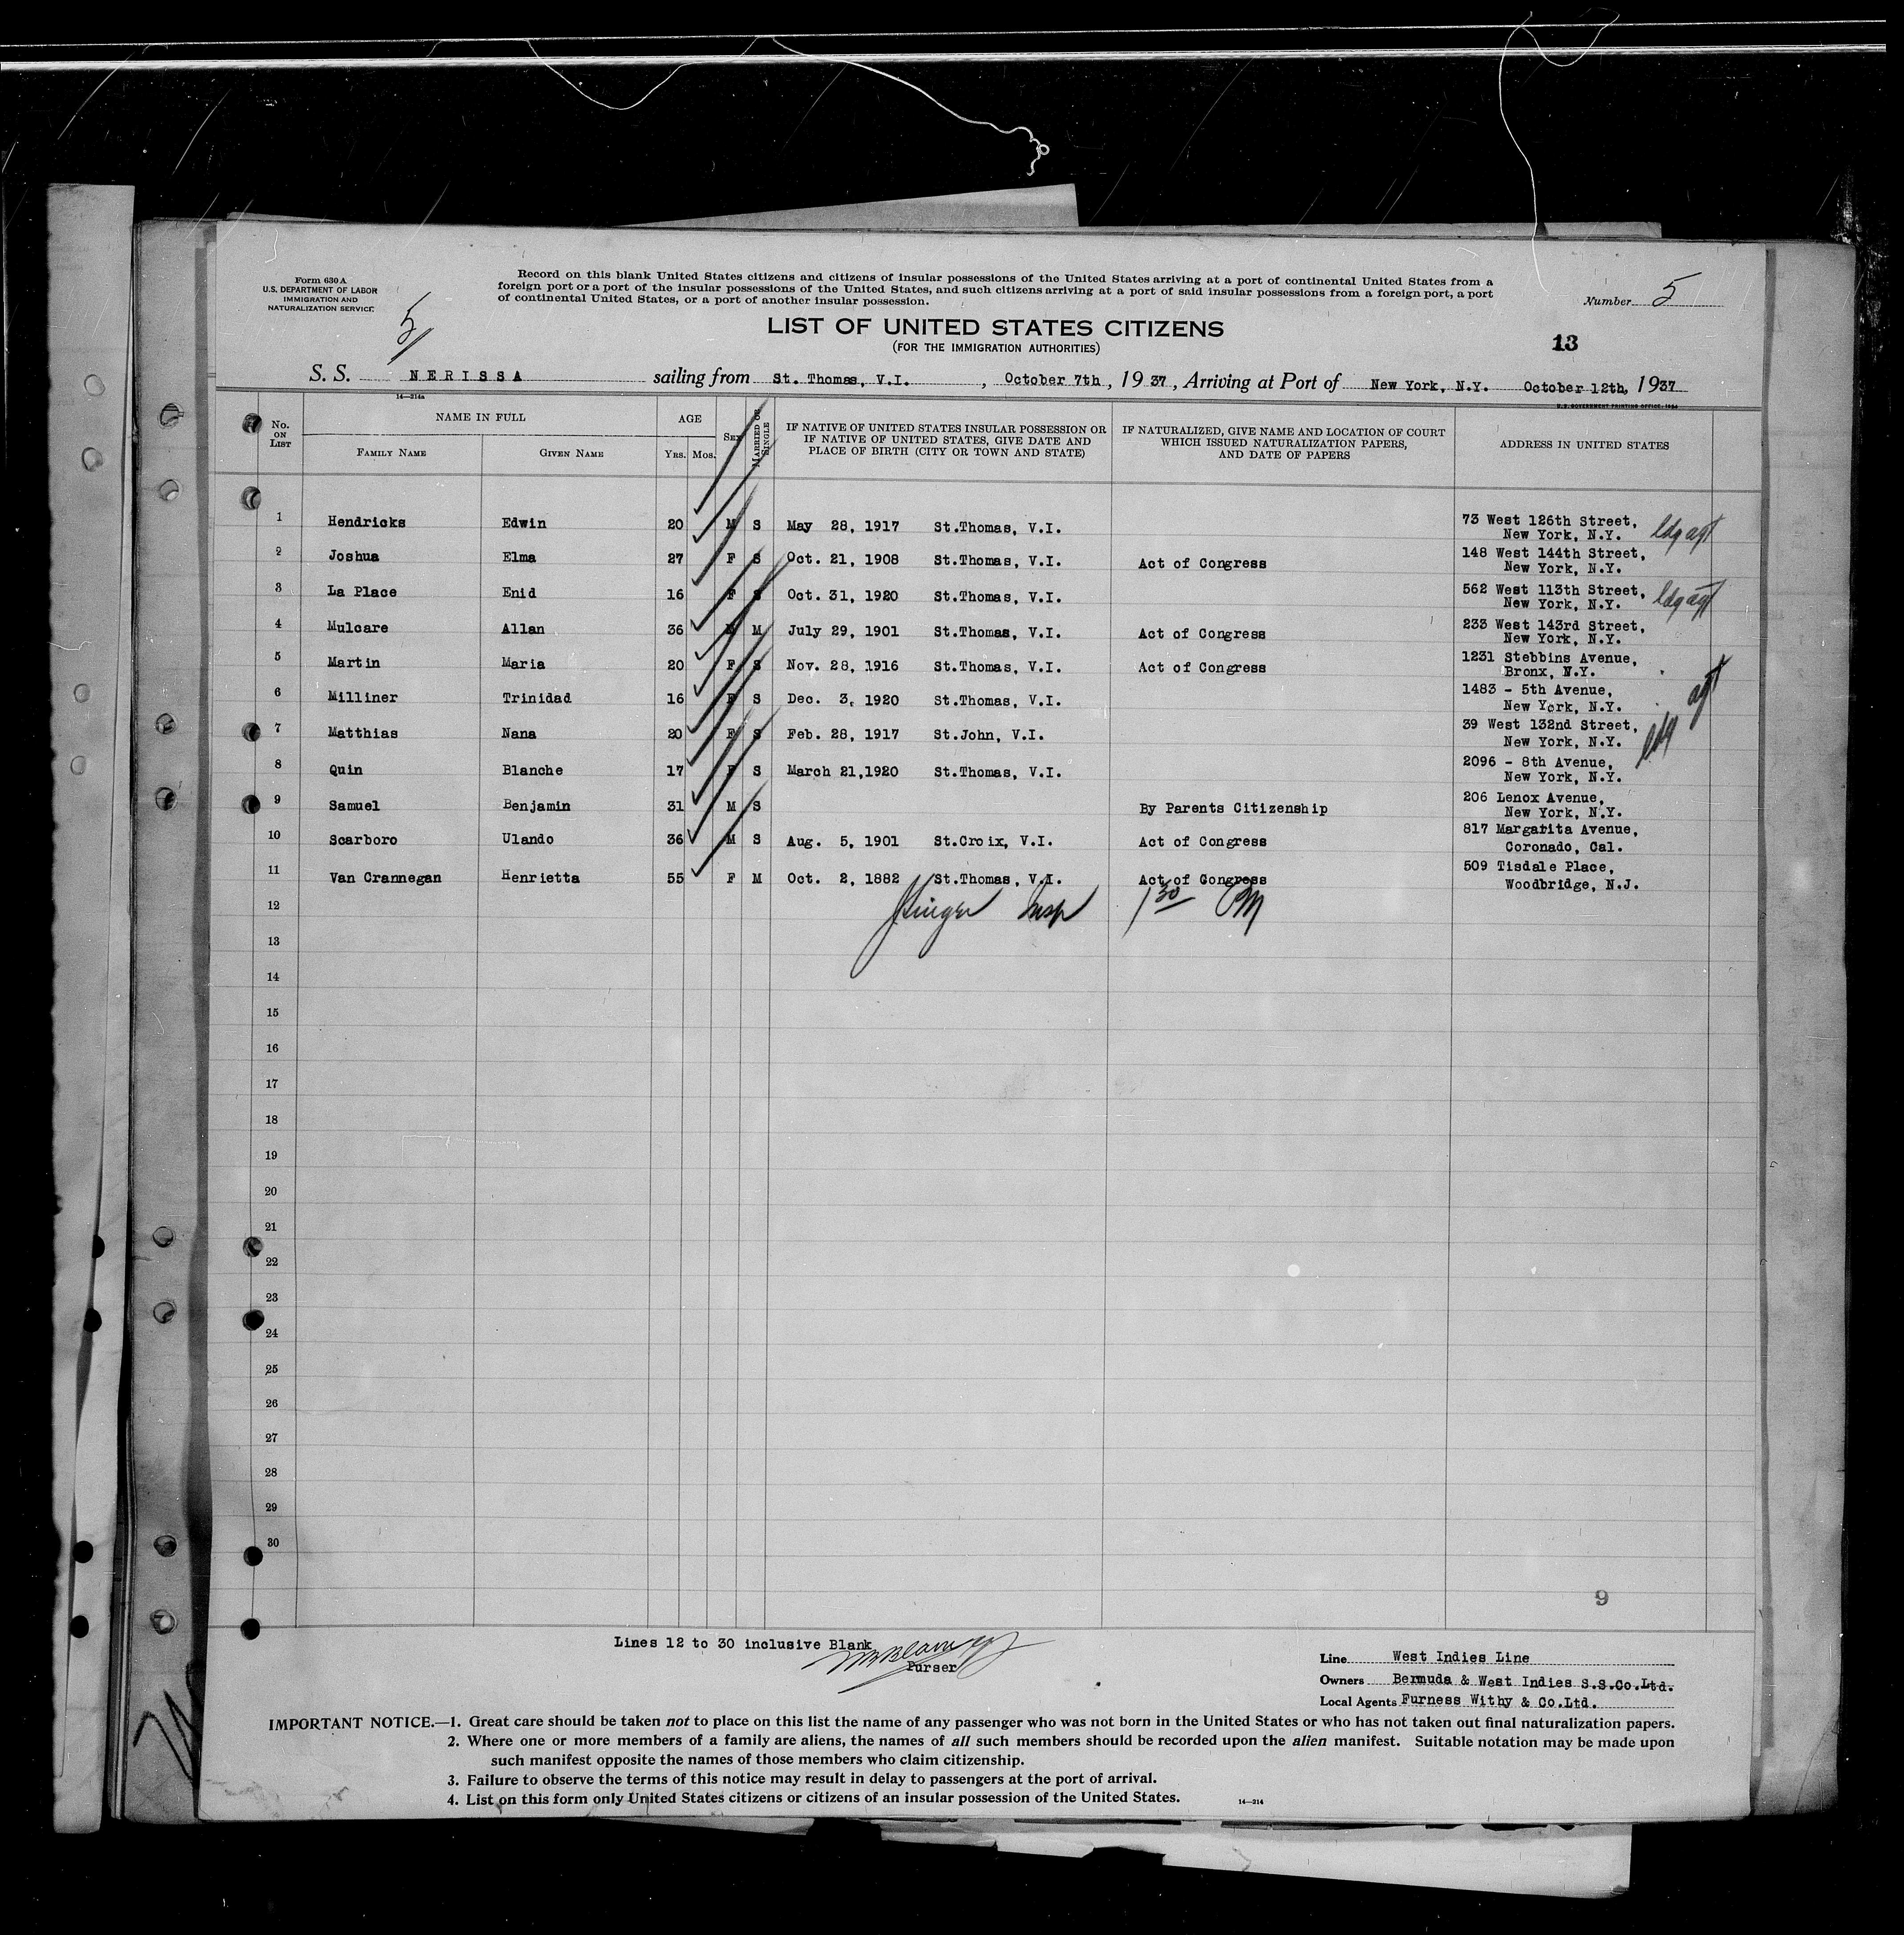 Form 630 A
U.S. DEPARTMENT OF LABOR
IMMIGRATION AND
NATURALIZATION SERVICE
5
Record on this blank United States citizens and citizens of insular possessions of the United States arriving at a port of continental United States from a
foreign port or a port of the insular possessions of the United States, and such citizens arriving at a port of said insular possessions from a foreign port, a port
of continental United States, or a port of another insular possession.
Number 5
LIST OF UNITED STATES CITIZENS
(FOR THE IMMIGRATION AUTHORITIES)
13
S. S. NERISSA sailing from St. Thomas, V.I. , October 7th , 19 37 , Arriving at Port of New York, N.Y. October 12th, 1937
14—214a
U.S. GOVERNMENT PRINTING OFFICE: 1934
No. ON LIST NAME IN FULL FAMILY NAME GIVEN NAME AGE YRS. MOS. SEX MARRIED OR SINGLE IF NATIVE OF UNITED STATES INSULAR POSSESSION OR IF NATIVE OF UNITED STATES, GIVE DATE AND PLACE OF BIRTH (CITY OR TOWN AND STATE) IF NATURALIZED, GIVE NAME AND LOCATION OF COURT WHICH ISSUED NATURALIZATION PAPERS, AND DATE OF PAPERS ADDRESS IN UNITED STATES
1 Hendricks Edwin 20 M S May 28, 1917 St.Thomas, V.I. 73 West 126th Street,
New York, N.Y. ldg agt
2 Joshua Elma 27 F S Oct. 21, 1908 St.Thomas, V.I. Act of Congress 148 West 144th Street,
New York, N.Y.
3 La Place Enid 16 F S Oct. 31, 1920 St.Thomas, V.I. 562 West 113th Street,
New York, N.Y. ldg agt
4 Mulcare Allan 36 M M July 29, 1901 St.Thomas, V.I. Act of Congress 233 West 143rd Street,
New York, N.Y.
5 Martin Maria 20 F S Nov. 28, 1916 St.Thomas, V.I. Act of Congress 1231 Stebbins Avenue,
Bronx, N.Y.
6 Milliner Trinidad 16 F S Dec. 3, 1920 St.Thomas, V.I. 1483 - 5th Avenue,
New York, N.Y.
7 Matthias Nana 20 F S Feb. 28, 1917 St.John, V.I. 39 West 132nd Street,
New York, N.Y. ldg agt
8 Quin Blanche 17 F S March 21,1920 St.Thomas, V.I. 2096 - 8th Avenue,
New York, N.Y.
9 Samuel Benjamin 31 M S By Parents Citizenship 206 Lenox Avenue,
New York, N.Y.
10 Scarboro Ulando 36 M S Aug. 5, 1901 St.Croix, V.I. Act of Congress 817 Margarita Avenue,
Coronado, Cal.
11 Van Crannegan Henrietta 55 F M Oct. 2, 1882 St.Thomas, V.I. Act of Gongress 509 Tisdale Place,
Woodbridge, N.J.
12 Insp 1 30 PM
13
14
15
16
17
18
19
20
21
22
23
24
25
26
27
28
29
30
9
Lines 12 to 30 inclusive Blank
Purser
Line West Indies Line
Owners Bermuda & West Indies S.S.Co.Ltd.
Local Agents Furness Withy & Co.Ltd.
IMPORTANT NOTICE.—1. Great care should be taken not to place on this list the name of any passenger who was not born in the United States or who has not taken out final naturalization papers.
2. Where one or more members of a family are aliens, the names of all such members should be recorded upon the alien manifest. Suitable notation may be made upon
such manifest opposite the names of those members who claim citizenship.
3. Failure to observe the terms of this notice may result in delay to passengers at the port of arrival.
4. List on this form only United States citizens or citizens of an insular possession of the United States.
14—214